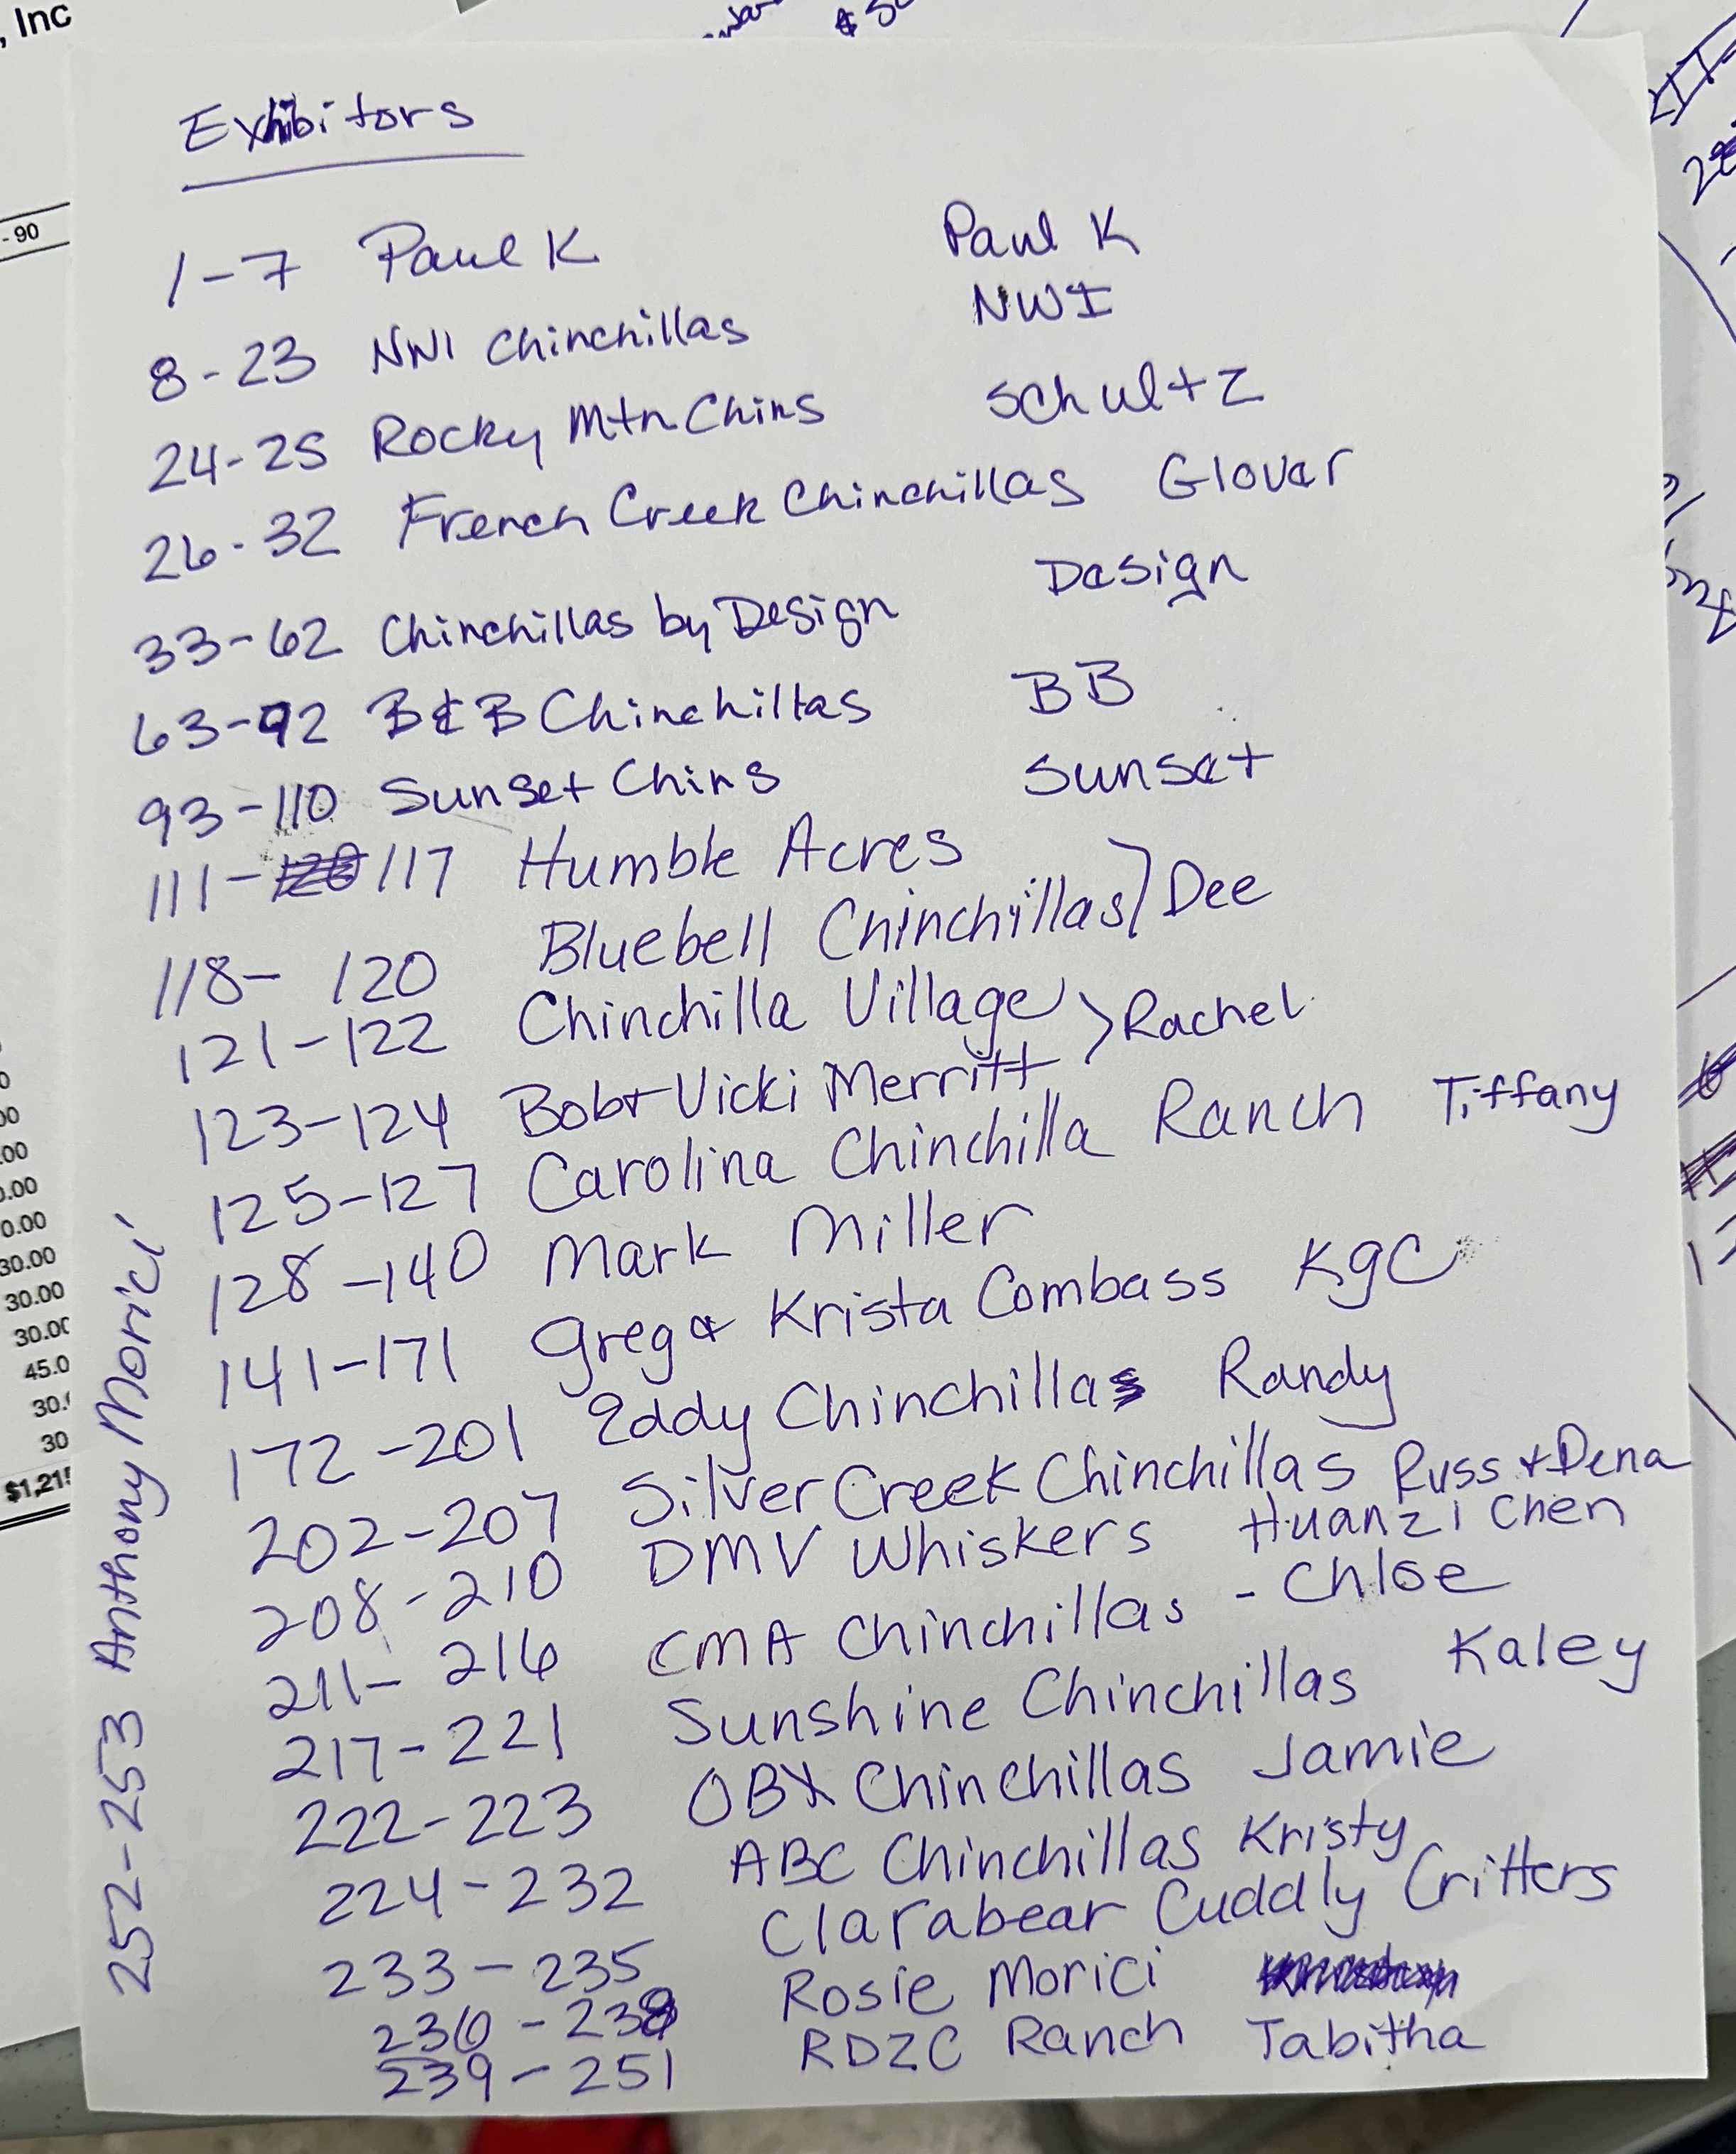 , Inc
- 90
Exhibitors
1-7 Paul K Paul K
8-23 NWI Chinchillas NWI
24-25 Rocky Mtn Chins Schultz
26-32 French Creek Chinchillas Glover
33-62 Chinchillas by Design Design
63-92 B&B Chinchillas BB
93-110 Sunset Chins Sunset
111-120 117 Humble Acres
118-120 Bluebell Chinchillas } Dee
121-122 Chinchilla Village
123-124 Bob + Vicki Merritt > Rachel
125-127 Carolina Chinchilla Ranch Tiffany
128-140 Mark Miller
141-171 Greg & Krista Combass KGC
172-201 Eddy Chinchillas Randy
202-207 Silver Creek Chinchillas Russ + Dena
208-210 DMV Whiskers Huanzi Chen
211-216 CMA Chinchillas - Chloe
217-221 Sunshine Chinchillas Kaley
222-223 OBX Chinchillas Jamie
224-232 ABC Chinchillas Kristy
233-235 Clarabear Cuddly Critters
236-238 Rosie Morici
239-251 RDZC Ranch Tabitha
252-253 Anthony Morici
.00
0.00
30.00
30.00
45.0
30.
30
$1,21